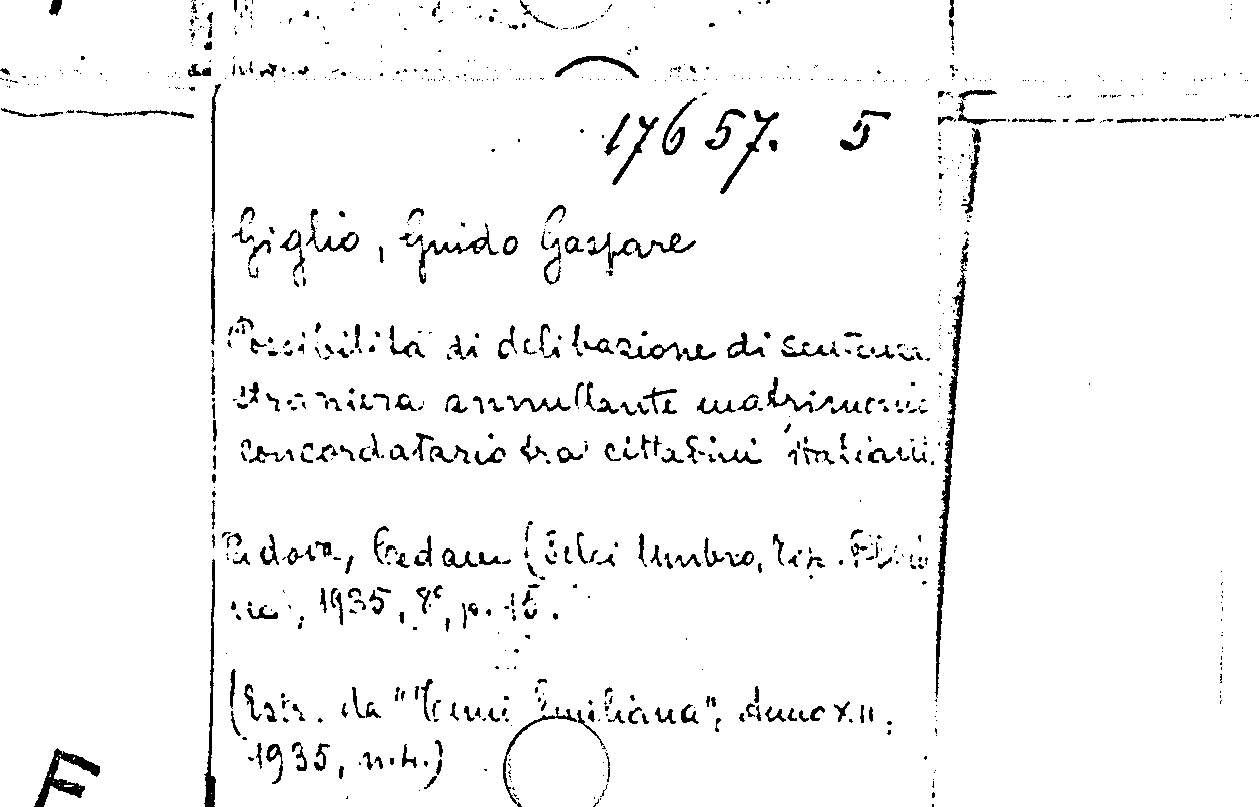 17657. 5
Giglio, Guido Gaspare
Possibilità di delibazione di sentenza
straniera annullante matrimonio
concordatario tra cittadini italiani.
Padova, Cedam (Selci Umbro, Tip.
1935, 8°, p. 15.
(Estr. da "Temi Emiliana", Anno XII,
1935, n.4.)
F